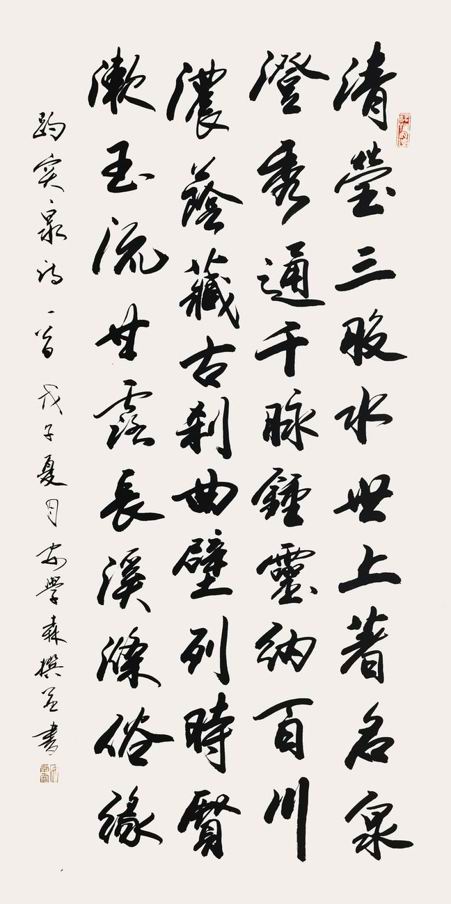 清瑩三股水世上著名泉
澄秀通千脉鍾靈納百川
濃蔭藏古刹曲壁列時賢
漱玉流甘露長溪滌俗緣
趵突泉诗一首 戊子夏月 學森撰並書